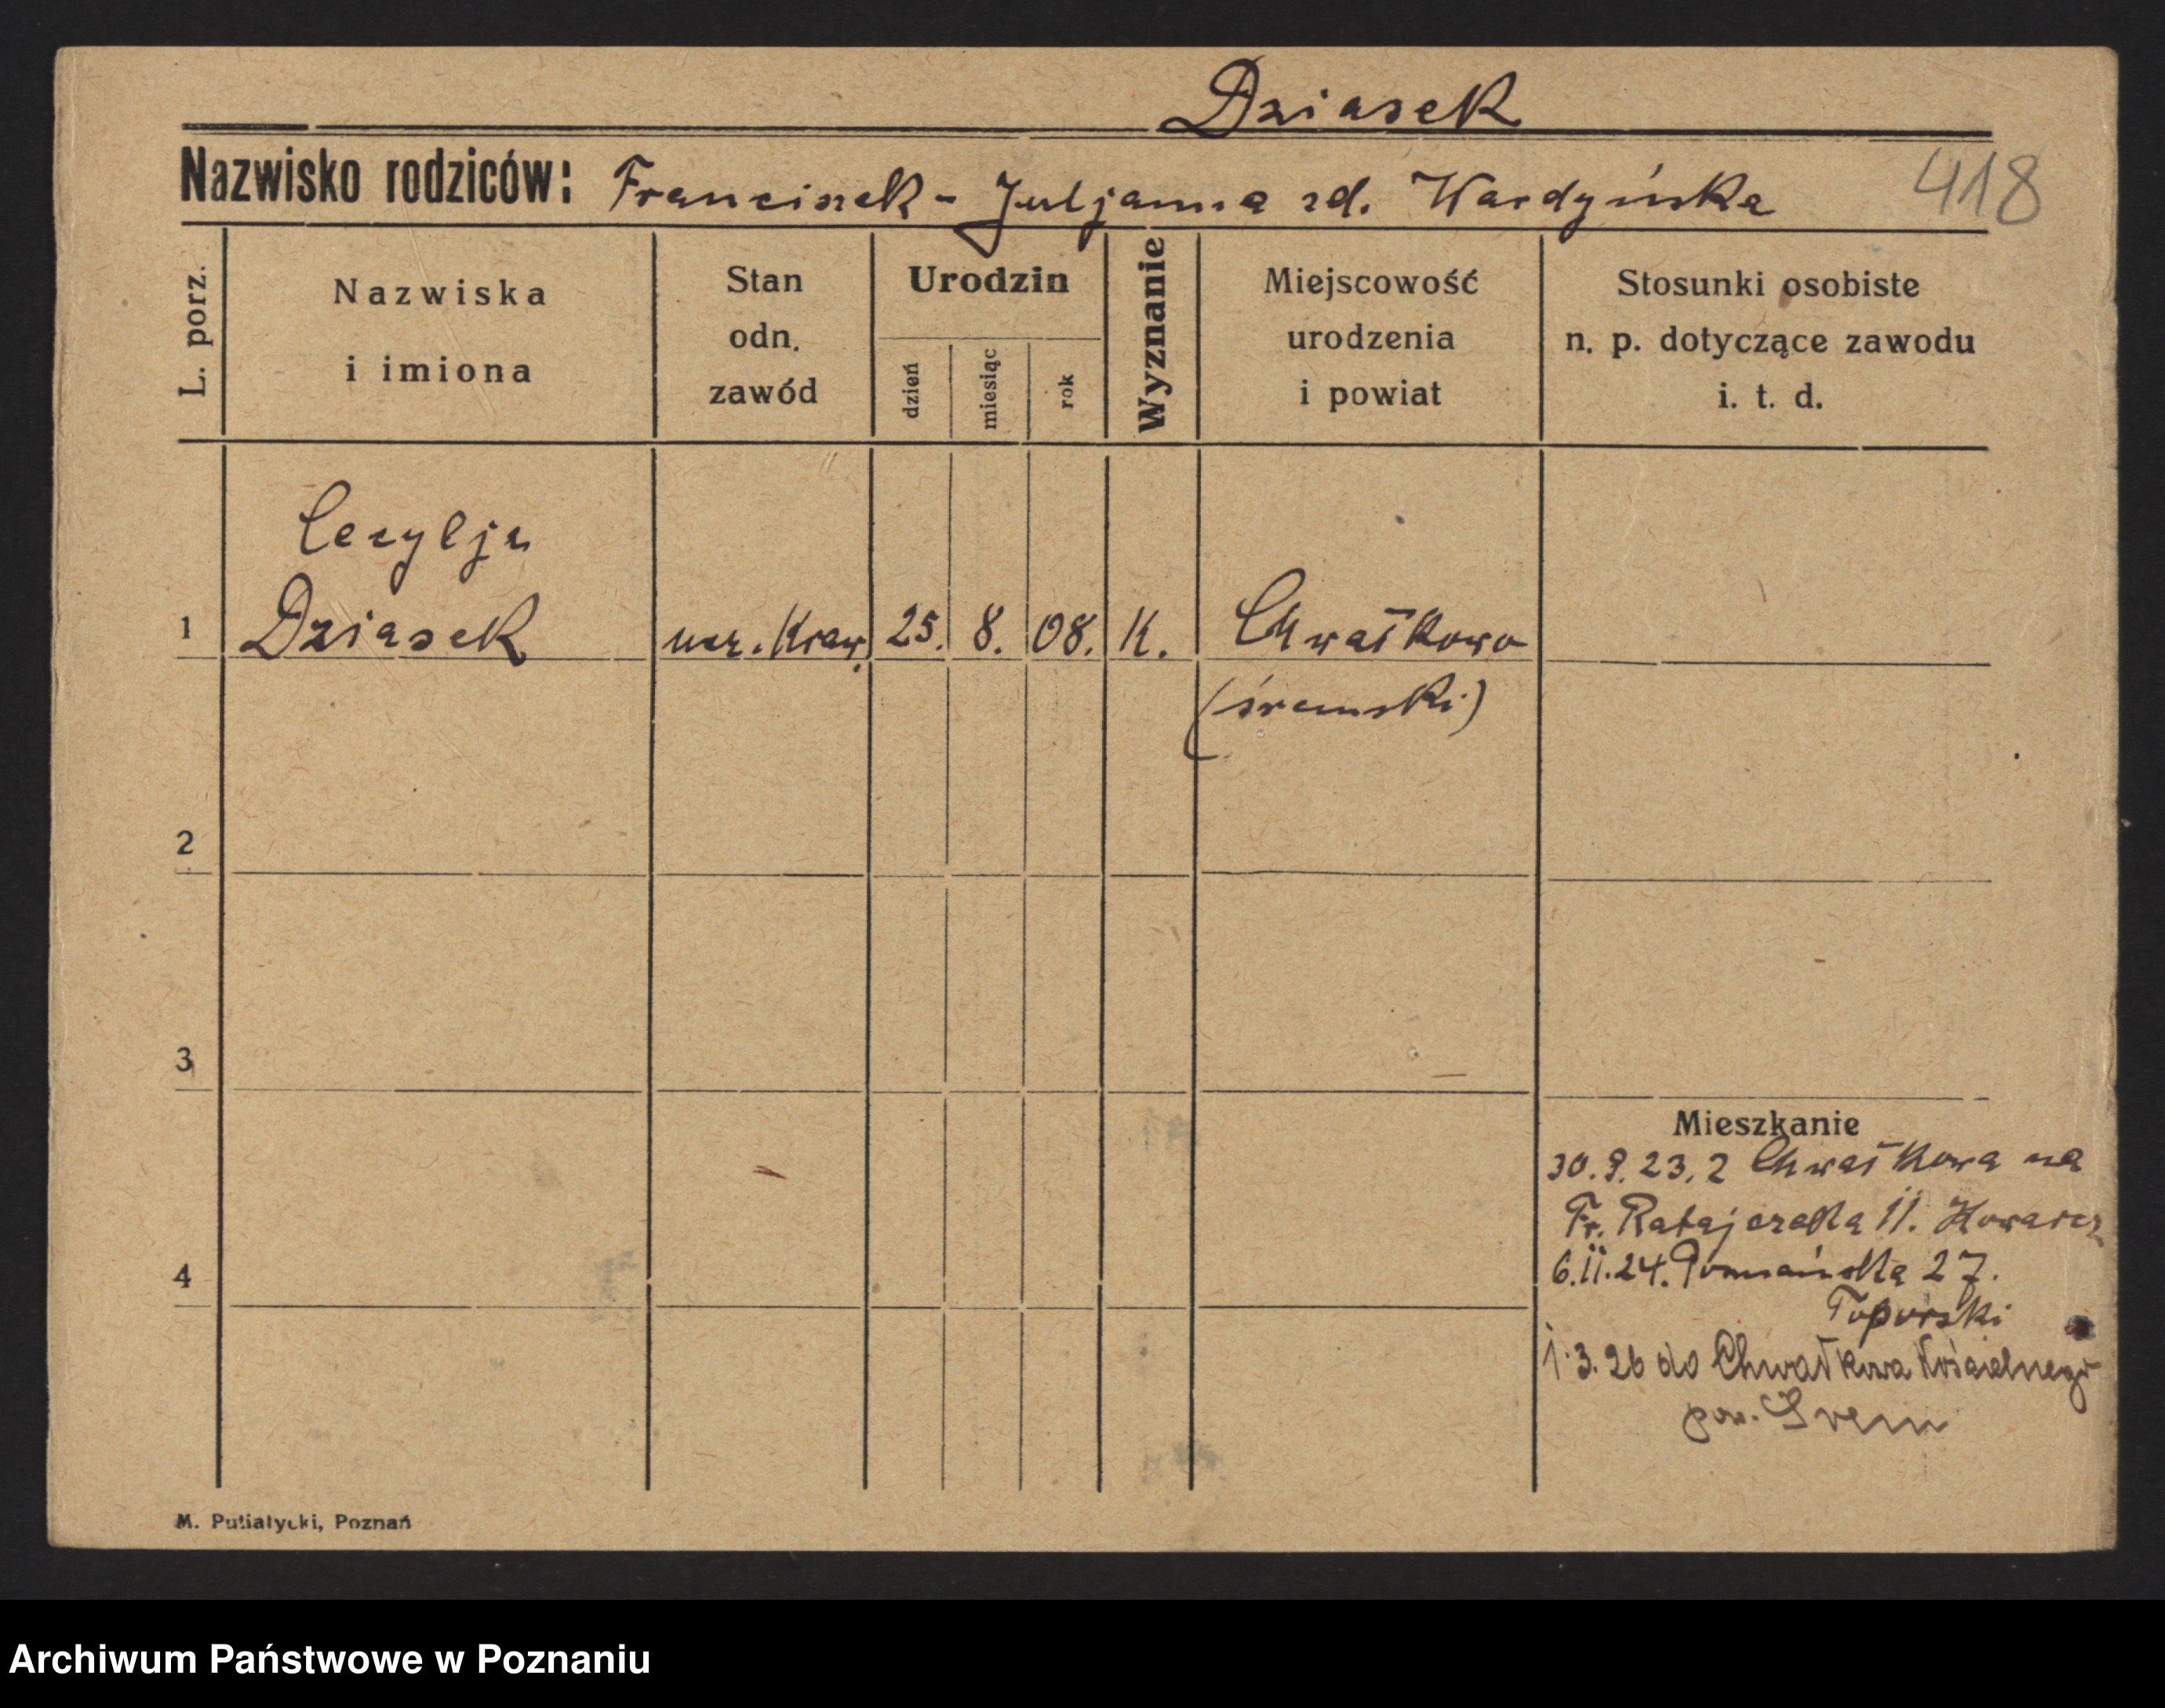 Dziasek
Nazwisko rodziców: Franciszek - Juljanna zd. Wardyńska 418
L. porz.
Nazwiska
i imiona
Stan
odn.
zawód
Urodzin
dzień
miesiąc
rok
Wyznanie
Miejscowość
urodzenia
i powiat
Stosunki osobiste
n. p. dotyczące zawodu
i. t. d.
Cecylja
1 Dziasek ucz. Kraw. 25. 8. 08. K. Chwałkowo
(śremski)
2
3
Mieszkanie
30.9.23. z Chwałkowa na
Fr. Ratajczaka 11.
4
6.II.24. Poznańska 27.
Toporski
1.3.26 do Chwałkowa Kościelnego
pow. Śrem
M. Putiatycki, Poznań
Archiwum Państwowe w Poznaniu